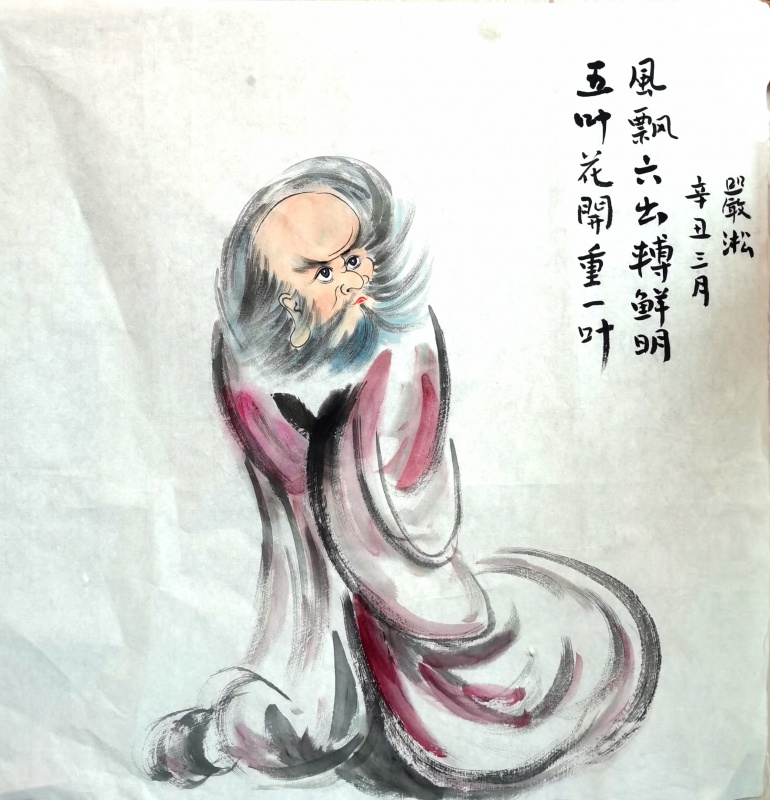 五叶花開重一叶
風飄六出轉鮮明
辛丑三月
嚴淞